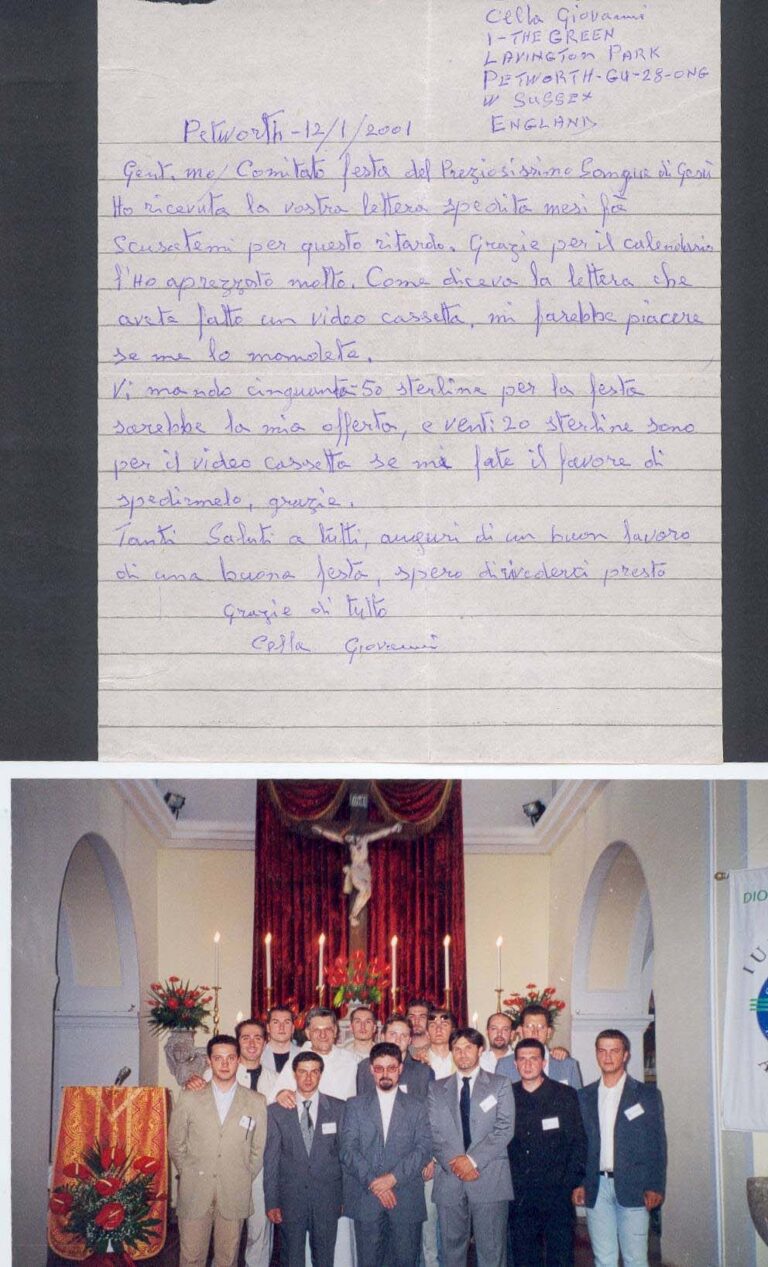 Cella Giovanni
1-THE GREEN
LAVINGTON PARK
PETWORTH-GU-28-ONG
W SUSSEX
ENGLAND
Petworth-12/1/2001
Gent.mo/ Comitato festa del Preziosissimo Sangue di Gesù
Ho ricevuta la vostra lettera spedita mesi fà
Scusatemi per questo ritardo. Grazie per il calendario
l'Ho aprezzato molto. Come diceva la lettera che
avete fatto un video cassetta, mi farebbe piacere
se me lo mandate.
Vi mando cinquanta-50 sterline per la festa
sarebbe la mia offerta, e venti 20 sterline sono
per il video cassetta se mi fate il favore di
spedirmelo, grazie.
Tanti Saluti a tutti, auguri di un buon lavoro
di una buona festa, spero di rivederci presto
Grazie di tutto
Cella Giovanni
DIO
IU